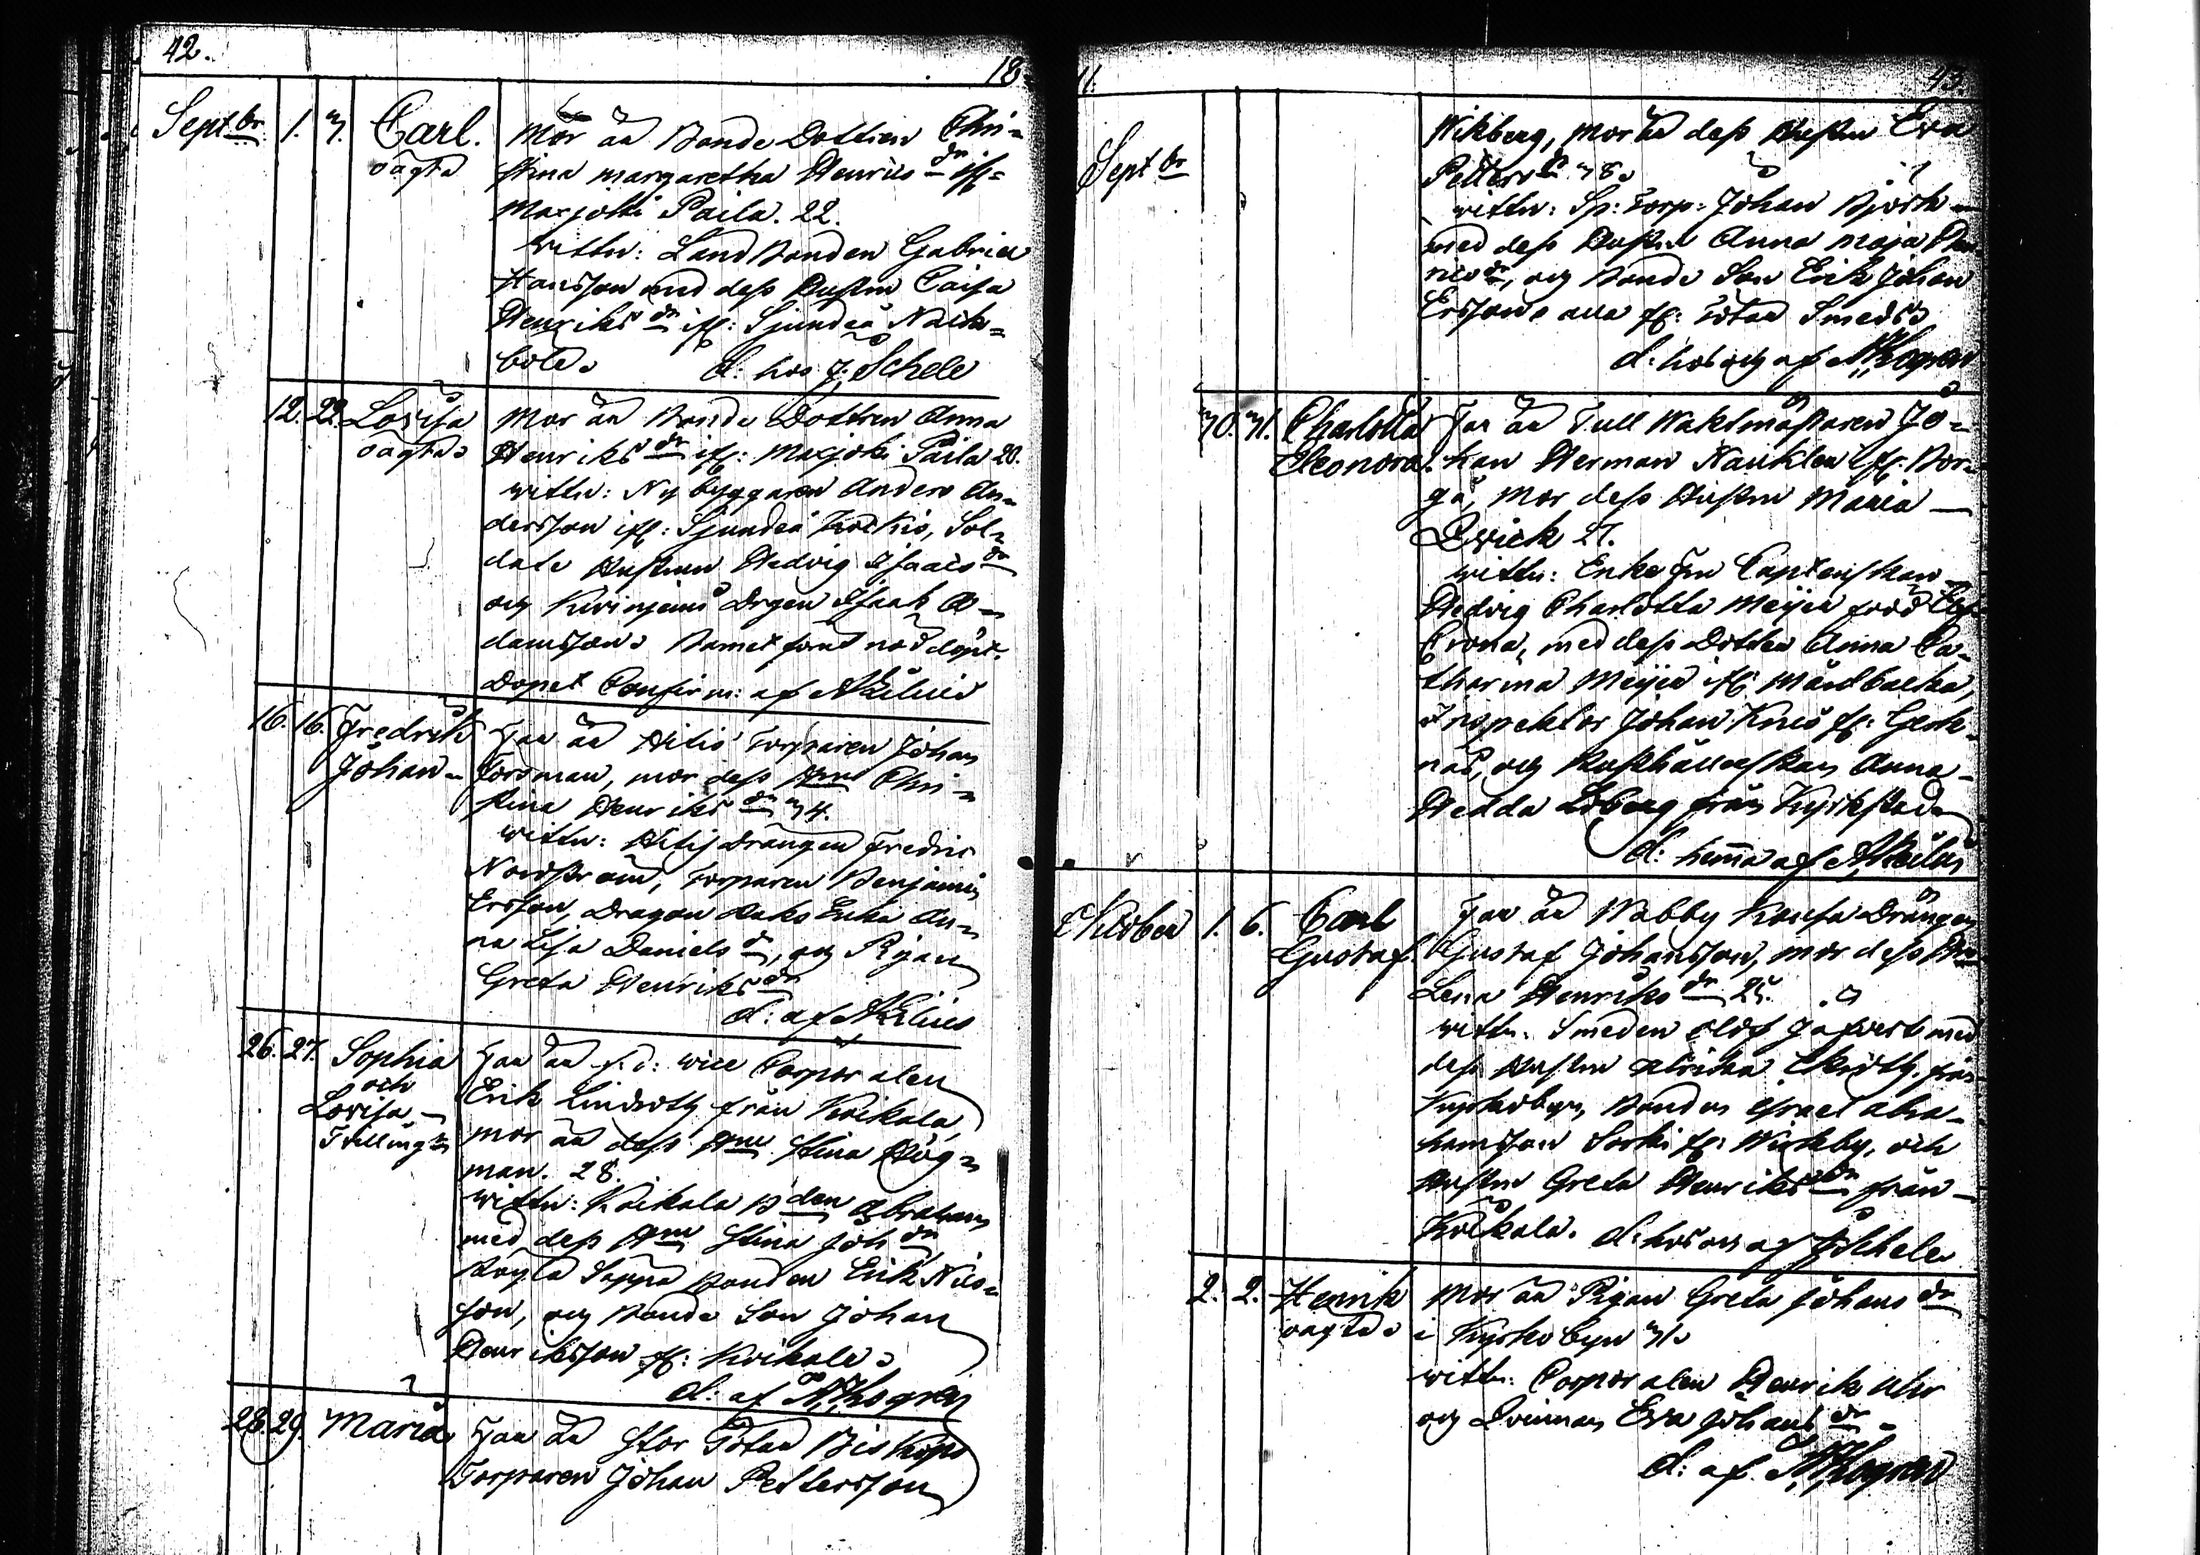 42.
18
Sept br 1. 3. Carl.
oägta
Mor är Bonde Dottren Chri=
stina margaretha Henrics dr ifr=
Marjoki Paila. 22.
wittn: Land Bonden Gabriel
Hansson med dess Hustru Caisa
Henriks dr ifr: Sjundeå Näck=
böle. d: hos J: Schele
12. 22. Lovisa
oägta
Mor är Bonde Dottren Anna
Henriks dr ifr: Marjoki Paila 20.
wittn: Nybyggaren Anders An=
dersson ifr: Sjundeå Kockis, Sol=
date Hustrun Hedvig Isaacs dr
och Drgen Isaak A=
damsson. Barnet förut nöddöpt.
Dopet Confirm: af
16. 16. Fredrik
Johan
Far är Torparen Johan
Forsman, mor dess Hru Chri=
stina Henriks dr 34.
wittn: Drängen Fredric
Nordström, Torparen Benjamin
Ersson, Dragon Enka An=
na Lisa Daniels dr, och Pigan
Greta Henriks dr
d: af
26. 27. Sophia
och
Lovisa
Tvilling
Far är f.d: vice Corporalen
Erik Lindroth från Koikala,
mor är dess Hru Stina Hög=
man. 28.
wittn: Koikala Bden Abraham
med dess Hru Stina Joh dr
Sappa Bonden Erik Nils=
son, och Bonde Son Johan
Henriksson fr: Koikala.
d: af
28. 29. Maria
Far är Stor Tötar Biskops
Torparen Johan Pettersson
11.
43.
Sept br
Wikberg, mor är dess Hustru Eva
Petters dr 38.
wittn: Sp: Torp: Johan Björk
med dess Hustru Anna Maja Hen
rics dr, och Bonde Son Erik Johan
Ersson, alla fr: Tötar Smeds.
d: hos och af
30. 31. Charlotta
Eleonora.
Far är Tull Waktmästaren Jo=
han Herman Nauklér ifr: Bor=
gå, Mor dess Hustru Maria
Qvick 27.
wittn: Enke Fru Captenskan
Hedvig Charlotta Meijer född
Crona, med dess Dotter Anna Ca=
tharina Meijer ifr: Månsbacka,
Inspektor Johan fr: Gerk=
näs, och Rusthållerskan Anna
Hedda Löberg från Kyrkstad
d: hemma af
October 1. 6. Carl
Gustaf.
Far är Wabby Drängen
Gustaf Johansson, mor dess Hru
Lena Henriks dr 25.
wittn: Smeden Olof med
dess Hustru Ulrika från
Kyrkobyn, Bonden Israel Abra=
hamsson fr: Wickby, och
Hustru Greta Henriks dr från
Koikala. d: hos och af J: Schele
2. 2. Henrik
oägta.
Mor är Pigan Greta Johans dr
i Kyrkobyn 31.
wittn: Corporalen Henrik Uhr
och Qvinnan Eva Johans dr
d: af